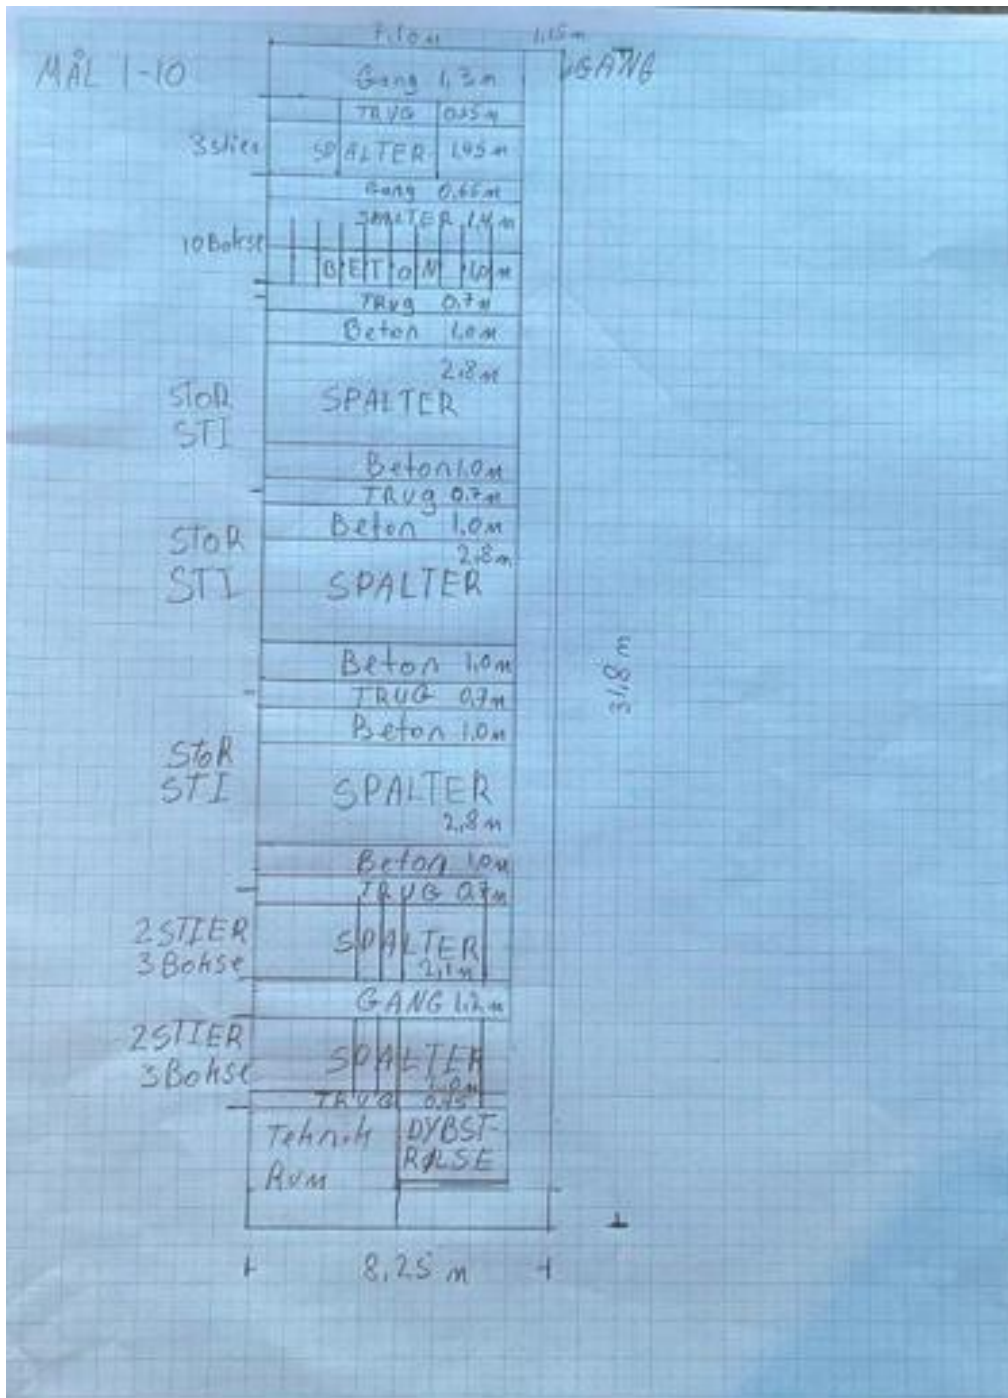 7,10 m 1,15 m
MÅL 1-10
GANG
Gang 1,3 m
TRUG
3 stier
SPALTER 1,45 m
Gang 0,65 m
SPALTER 1,4 m
10 Bokse
BETON 1,0 m
TRUg 0.7 m
Beton 1,0 m
2,8 m
STOR
STI
SPALTER
Beton 1.0 m
TRUg 0.7 m
Beton 1.0 m
2,8 m
STOR
STI
SPALTER
Beton 1,0 m
31,8 m
TRUG 0,7 m
Beton 1.0 m
STOR
STI
SPALTER
2,8 m
Beton 1,0 m
TRUG 0,7 m
2 STIER
3 Bokse
SPALTER
GANG 1,2 m
2 STIER
3 Bokse
SPALTER
TRUG 0,45
Teknik
Rum
DYBST-
RØLSE
8,25 m